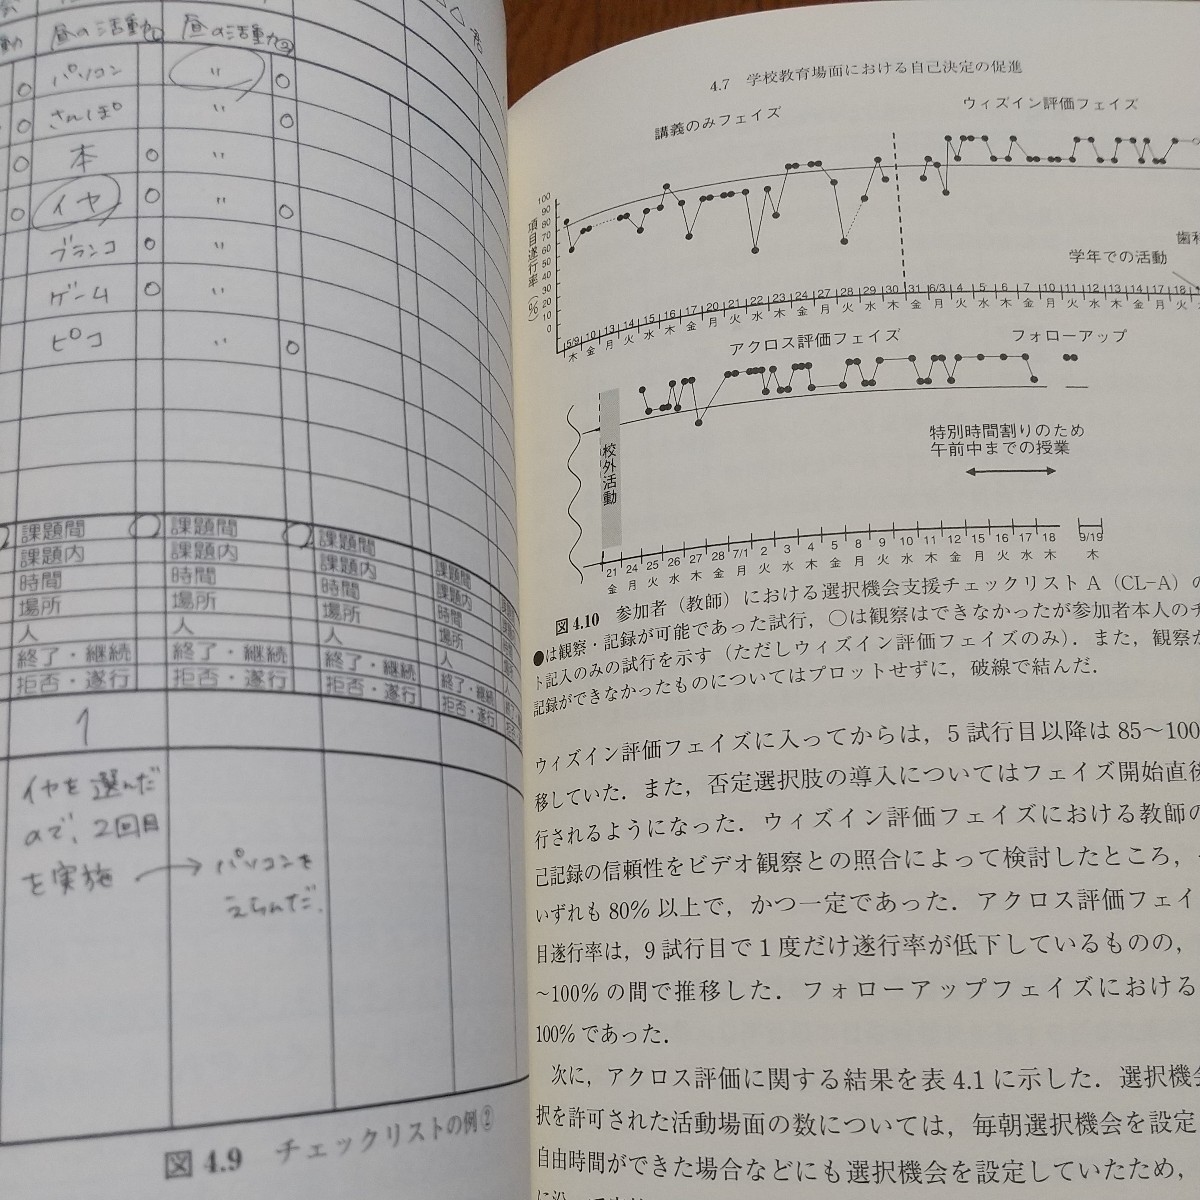 昼の活動① 昼の活動②
パソコン 〃
さんぽ 〃
本 〃
イヤ 〃
ブランコ 〃
ゲーム 〃
ピコ 〃
課題間 課題間 課題間 課題間
課題内 課題内 課題内
時間 時間 時間 時間
場所 場所 場所 場所
人 人 人 人
終了・継続 終了・継続 終了・継続 終了・継続
拒否・遂行 拒否・遂行 拒否・遂行 拒否・遂行
1
イヤを選んだ
ので、2回目
を実施 → パソコンを
えらんだ.
図 4.9 チェックリストの例②
4.7 学校教育場面における自己決定の促進
講義のみフェイズ
ウィズイン評価フェイズ
項目遂行率(%)
100
90
80
70
60
50
40
30
20
10
0
学年での活動
歯科
5/9 10 13 14 15 16 17 20 21 22 23 24 27 28 29 30 31 6/3 4 5 6 7 10 11 12 13 14 17 18
木 金 月 火 水 木 金 月 火 水 木 金 月 火 水 木 金 月 火 水 木 金 月 火 水 木 金 月 火
アクロス評価フェイズ
フォローアップ
校外活動
特別時間割りのため
午前中までの授業
21 24 25 26 27 28 7/1 2 3 4 5 8 9 10 11 12 15 16 17 18 9/19
金 月 火 水 木 金 月 火 水 木 金 月 火 水 木 金 月 火 水 木 木
図 4.10 参加者（教師）における選択機会支援チェックリスト A（CL-A）の
●は観察・記録が可能であった試行，○は観察はできなかったが参加者本人のチ
ト記入のみの試行を示す（ただしウィズイン評価フェイズのみ）．また，観察か
記録ができなかったものについてはプロットせずに，破線で結んだ．
ウィズイン評価フェイズに入ってからは，5 試行目以降は 85〜100
移していた．また，否定選択肢の導入についてはフェイズ開始直後
行されるようになった．ウィズイン評価フェイズにおける教師の
己記録の信頼性をビデオ観察との照合によって検討したところ，
いずれも 80% 以上で，かつ一定であった．アクロス評価フェイ
目遂行率は，9 試行目で 1 度だけ遂行率が低下しているものの，
〜100% の間で推移した．フォローアップフェイズにおける
100% であった．
次に，アクロス評価に関する結果を表 4.1 に示した．選択機会
択を許可された活動場面の数については，毎朝選択機会を設定
自由時間ができた場合などにも選択機会を設定していたため，